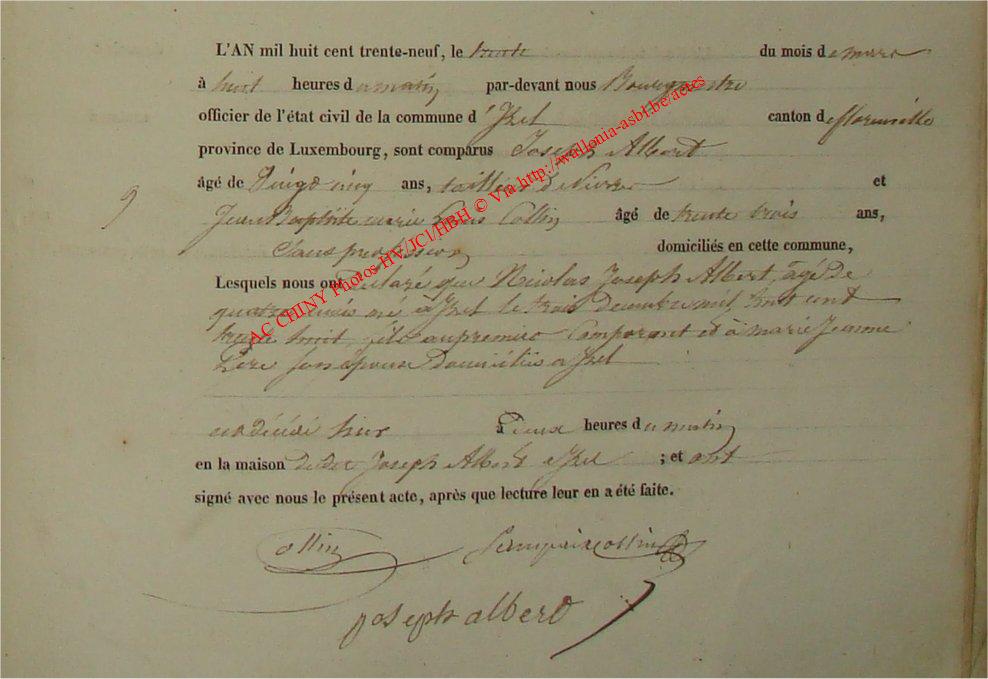 L'AN mil huit cent trente-neuf, le trente du mois de mars
à huit heures du matin par-devant nous Bourgmestre
officier de l'état civil de la commune d'Izel canton de florenville
province de Luxembourg, sont comparus Joseph Albert
âgé de Vingt cinq ans, et
9
Jean Baptiste marie Louis Collin âgé de trente trois ans,
Sans profession domiciliés en cette commune,
Lesquels nous ont déclaré que Nicolas Joseph Albert, âgé de
quatre mois né à Izel le trois decembre mil huit cent
trente huit, fils au premier Comparant et à marie Jeanne
son épouse domiciliés a Izel
est décédé hier à deux heures du matin
en la maison dudit Joseph Albert a Izel ; et ont
signé avec nous le présent acte, après que lecture leur en a été faite.
collin
collin
joseph albert
AC CHINY Photos HV/JCl/HBH © Via http://wallonia-asbl.be/actes